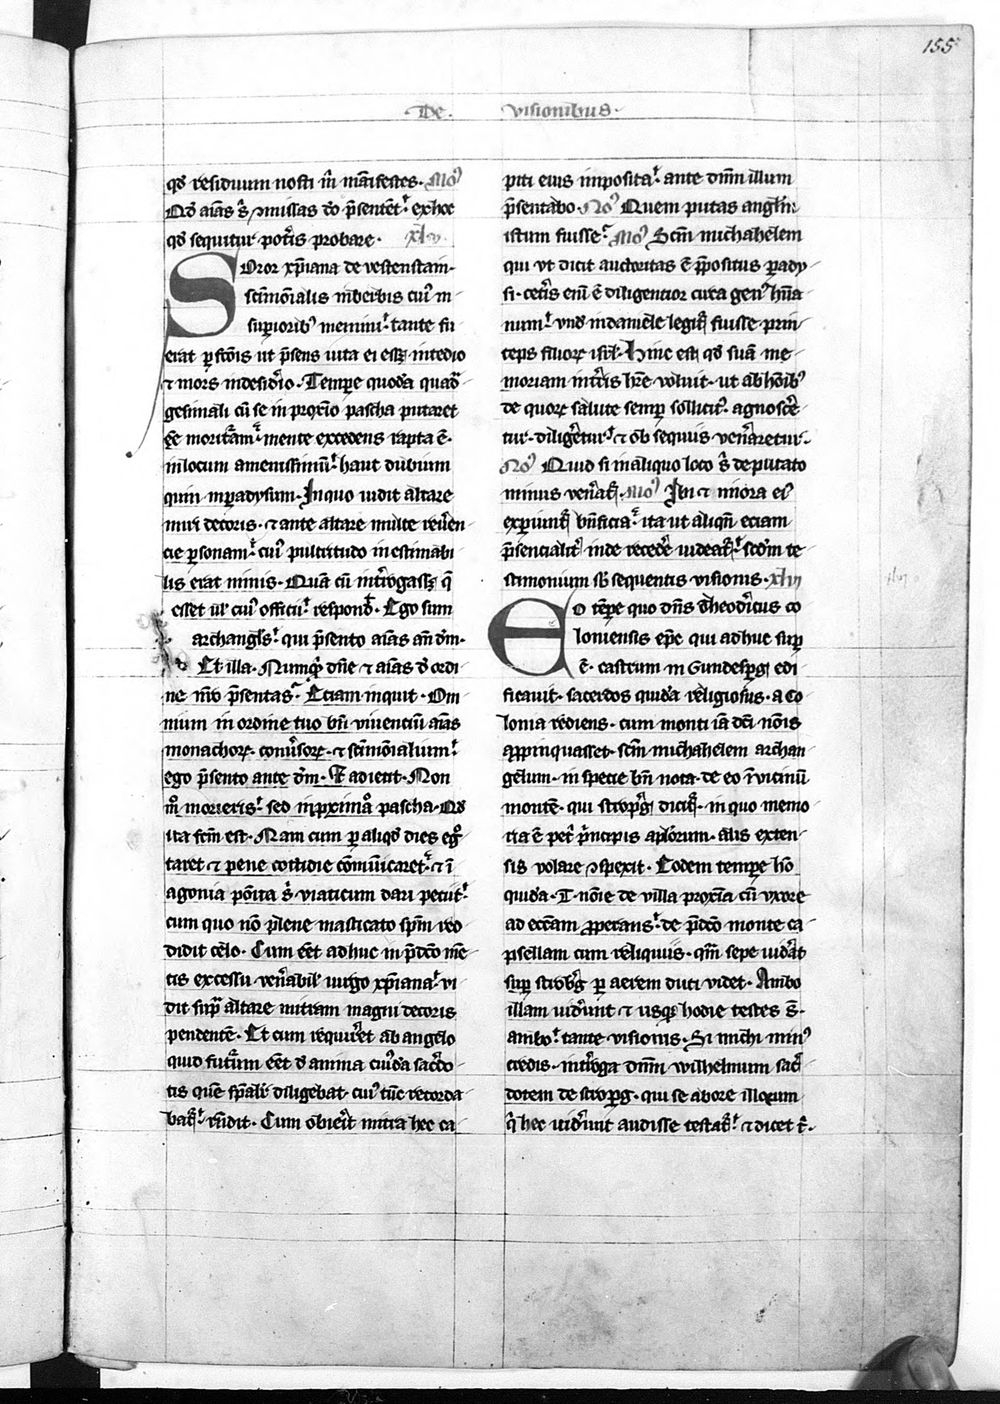 155
De visionibus
qd̄ residuum nosti m̄ manifestes. Mo⁹
Qd̄ aīas s̄ ꝯmissas dō p̄sentēt: ex hoc
qd̄ sequitur pot̄is probare. xlv.
Soror xp̄iana de vestenstam
scīmōialis inberbis cuī in
suꝑioribꝰ memini: tante fu
erat ꝑfc̄ōis ut p̄sens uita ei esset in tedio
⁊ mors in desid̓io. Tempe quodā quad̓
gesimali cū se in proxīo pascha putaret
ēe moritūam: mente excedens rapta ē.
in locum amenissimū: haut dubium
quin in ꝑadysum. In quo uidit altare
miri decoris. ⁊ ante altare multe reuēren
cie ꝑsonam: cuiꝰ pulcritudo inestimabi
lis erat nimis. Quā cū int̓rogasset q̄
esset ul̓ cuiꝰ officii: respond̓. Ego sum
archangl̓s: qui p̄sento aīas an̄ dm̄.
Et illa. Numqͥd dn̄e ⁊ aīas d̄ ordi
ne nr̄o p̄sentas? Eciam inquit. Om
nium in ordine tuo bn̄ viuenciū aīas
monachoꝝ. conūsoꝝ. ⁊ scīmōialium:
ego p̄sento ante dm̄. Et adiecit. Non
m̄ morieris: sed in pximo pascha. Qd̄
ita fcm̄ est. Nam cum ꝑ aliqd̄ dies egͦ
taret ⁊ pene cottidie cōmūicaret: ⁊ ī
agonia pōita s̄ viaticum dari petiit:
cum quo nō plene masticato sp̄m red
didit celo. Cum ēet adhuc in p̄dc̄o mē
tis excessu ven̄abil̓ uirgo xp̄iana: vi
dit supͣ altare mitram magni decoris
pendentē. Et cum requir̓et ab angelo
quid futūm ēet d̄ anima cuiꝰdā sac̄do
tis quē sp̄alit̓ diligebat. cuiꝰ tūc recorda
bat̓: rn̄dit. Cum obier̓it mitra hec ca
piti eius imposita: ante dn̄m illum
p̄sentabo. No⁹ Quem putas angl̓m
istum fuisse? Mo⁹ Scm̄ michahelem
qui vt dicit auctoritas ē p̄positus ꝑady
si. cet̓is enī ē diligentior circa gen⁹ hūa
num: vnd̓ in daniele legit̓ fuisse prin
ceps filioꝝ isrl̓. Hinc est qd̄ suā me
moriam in t̓ris hr̄e voluit. ut ab hōibꝰ
de quoꝝ salute semꝑ sollicitꝰ. agnosce
tur. diliget̓ur. ⁊ ob sequiis ven̄aretur.
No⁹ Quid si in aliquo loco s̄ deputato
minus ven̄at̓. Mo⁹ Ibi ⁊ minora eiꝰ
experiunt̓ bn̄ficia: ita ut aliqn̄ eciam
p̄sencialit̓ inde recedē uideat̓: scdm̄ te
stimonium sb̄ sequentis visionis. xlvi
Eo tēpe quo dn̄s theod̓icus co
loniensis epc̄ qui adhuc suꝑ
ē. castrum in Gundesp̄g edi
ficauit. sacerdos quidā religiosus. a Co
lonia rediens. cum monti iā dc̄i nōis
appinquasset. scm̄ michahelem archan
gelum. in specie bn̄ nota. de eo ī vicinū
montē. qui st̓wp̄g dicit̓. in quo memo
ria ē pet̓ p̄ncipis apl̓orum. alis exten
sis volare ꝯspexit. Eodem tempe hō
quidā. T. nōie de villa proxīa cū vxore
ad eccīam properans: de p̄dc̄o monte ca
psellam cum reliquiis. qm̄ sepe uid̓at
suꝑ st̓wb̓g ꝑ aerem duci videt. Ambo
illam uid̓unt ⁊ usqꝫ hodie testes s̄.
ambo: tante visionis. Si michi minꝰ
credis. int̓roga dn̄m wilhelmum sac̄
dotem de st̓wp̓g. qui se ab ore illoꝝ um
q̄ hec uid̓unt audisse testat̓: ⁊ dicet t̄.